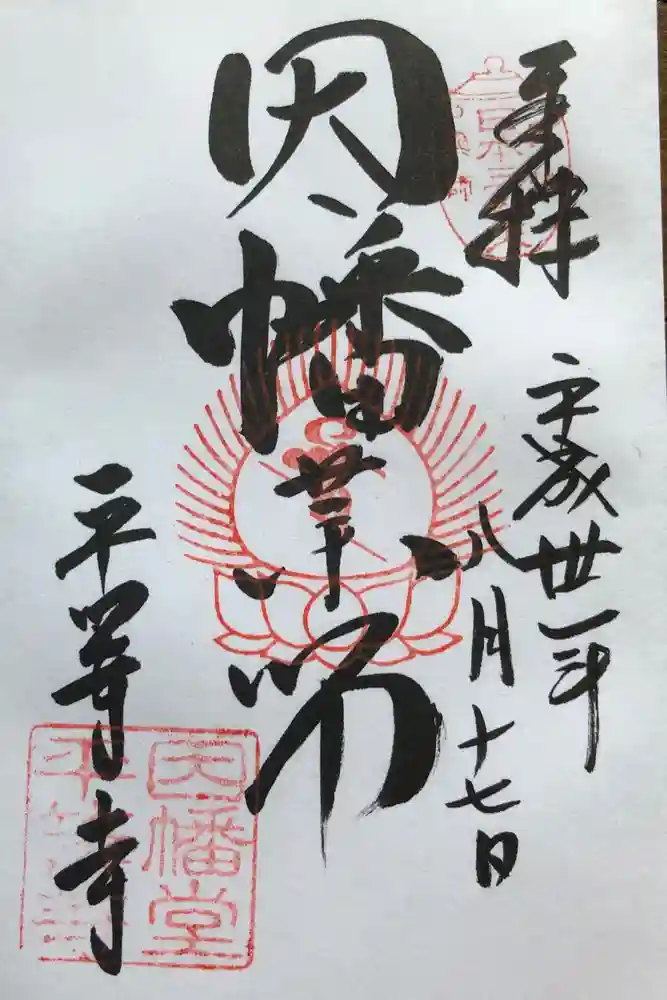 奉拝
平成卅一年
八月十七日
因幡薬師
平等寺
因幡堂
平等寺